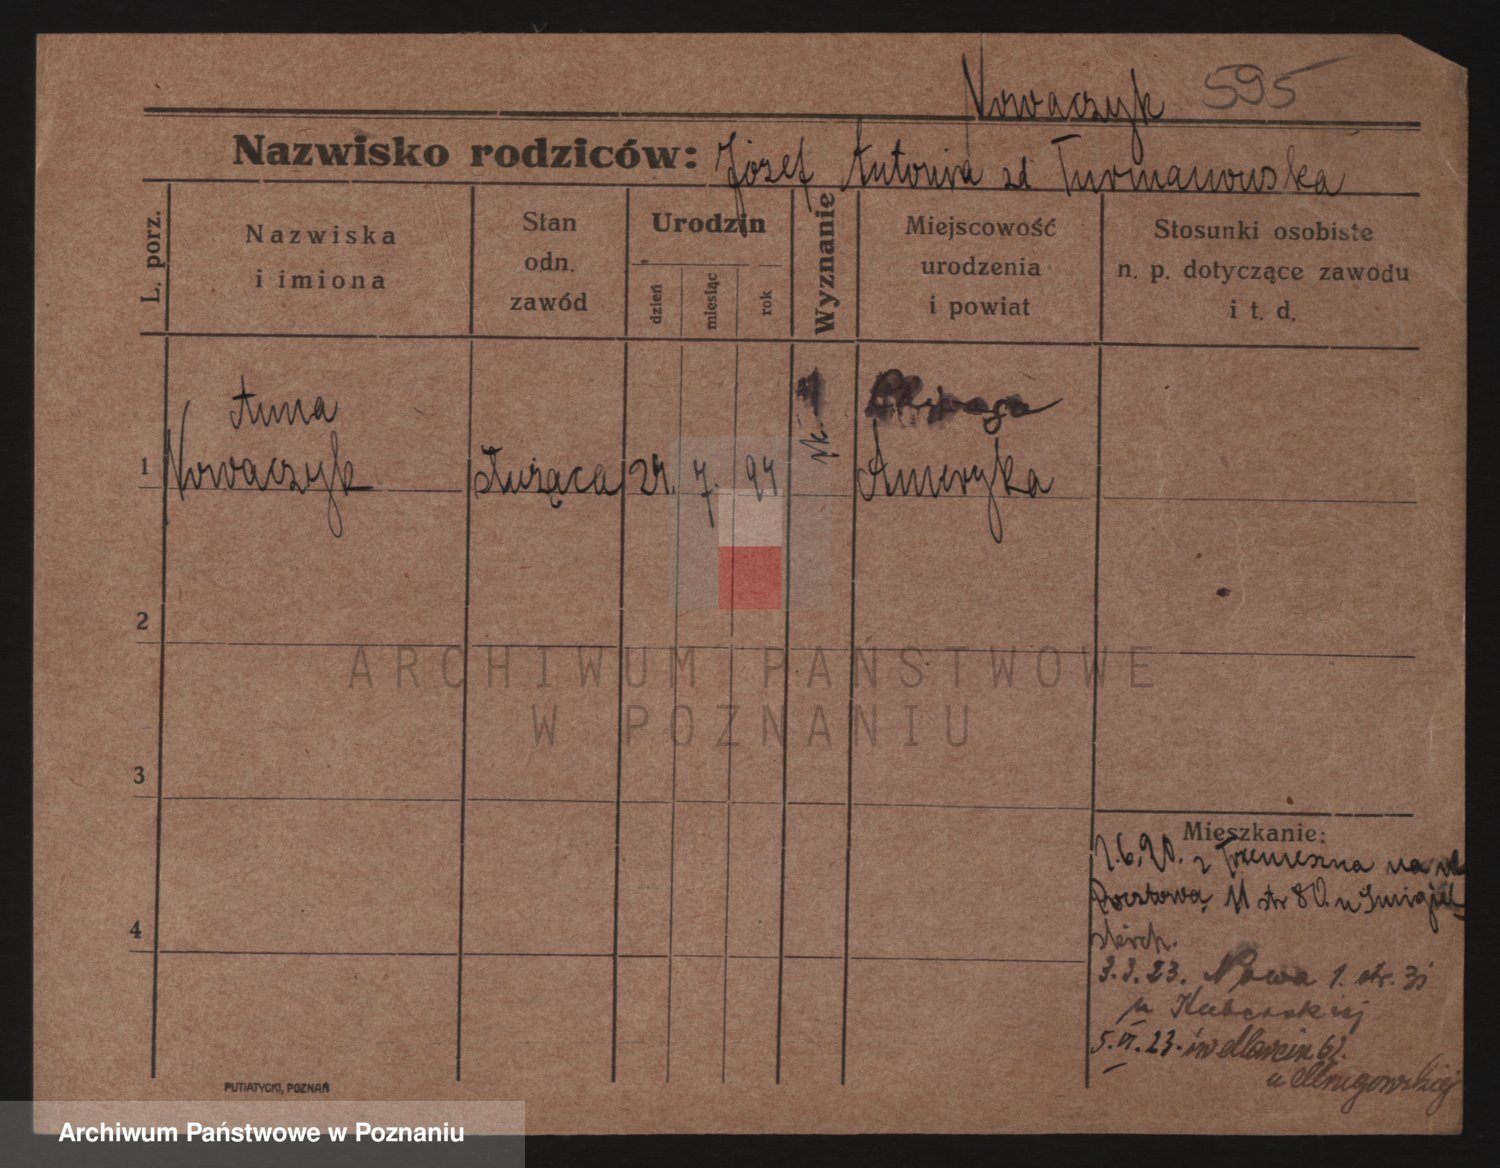 Nowaczyk 595
Nazwisko rodziców: Józef Antonina zd Turmanowska
L. porz.
Nazwiska
i imiona
Stan
odn.
zawód
Urodzin
dzień
miesiąc
rok
Wyznanie
Miejscowość
urodzenia
i powiat
Stosunki osobiste
n. p. dotyczące zawodu
i t. d.
Anna
1 Nowaczyk służąca 24. 7. 94 rk. Ameryka
2
ARCHIWUM PAŃSTWOWE
W POZNANIU
3
Mieszkanie:
1.6.20. z Trzemeszna na ul
Pocztową 11 str 80. u
4
3.3.23. Nowa 1. str. 35
u
5.VI.23. św Marcin 62.
u
PUTIATYCKI, POZNAŃ
Archiwum Państwowe w Poznaniu